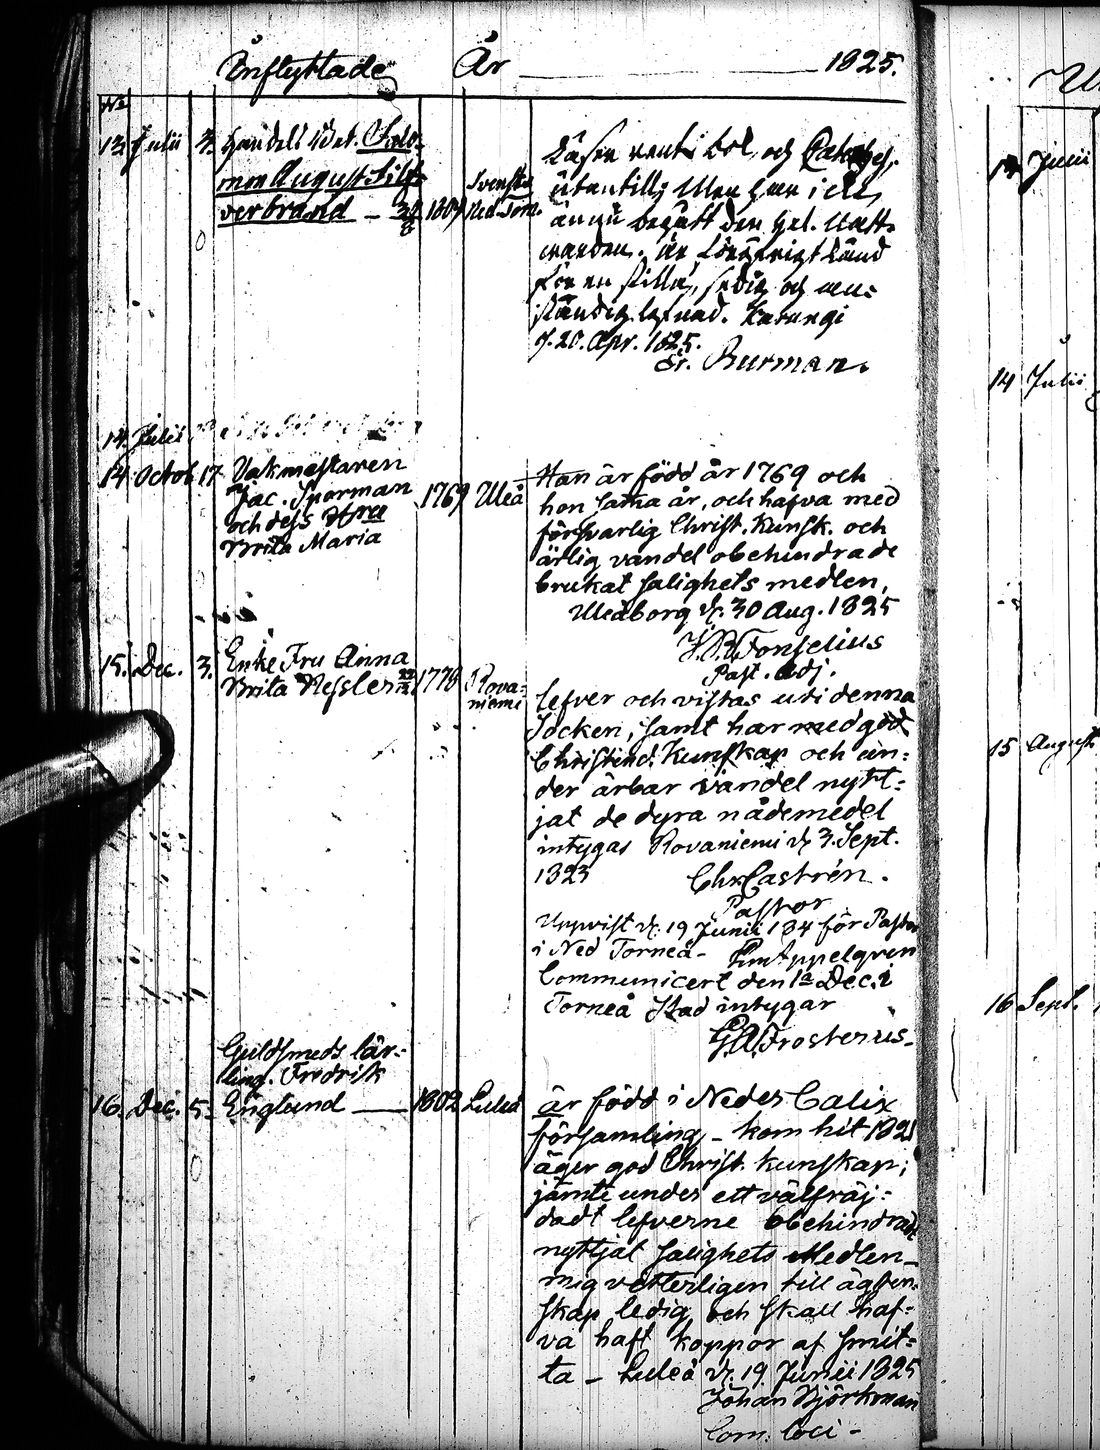 Inflyttade År 1825.
No
13 Julii 4. Handels Bet. Salo-
mon August Silf-
verbrand - 1807 Svenska
Ned. Torn.
Läser rent i bok, och Cateches.
utantill; Men har icke
ännu begått den hel. Natt-
warden. Är för öfrigt känd
för en stilla, sedig och an-
ständig lefnad. Karungi
d. 20. Apr. 1825.
Er. Burman.
14. Julii
14 Octob 17 Vakmästaren
Jac. Sporman
och dess Hfru
Brita Maria
1769 Uleå
Han är född år 1769 och
hon sama år, och hafva med
försvarlig Christ. Kunsk. och
ärlig vandel obehindrade
brukat salighets medlen,
Uleåborg d. 30 Aug. 1825
Past. Adj.
15. Dec. 3. Enke Fru Anna
Brita Nessler 1778 Rova-
niemi
lefver och vistas uti denna
Socken, samt har med god
Christend. Kunskap och un-
der ärbar vandel nytt-
jat de dyra nådemedel
intygas Rovaniemi d. 3. Sept.
1823 Chr Castrén.
Pastor
Uppvist d. 19 Junii 184 för Pastor
i Ned Torneå - Appelgren
Communicert den 1a Dec. i
Torneå Stad intygar
Frosterus.
Guldsmeds lär-
ling. Fredrik
16. Dec. 5. Englund — 1802 Luleå
är född i Neder Calix
församling - kom hit 1821
äger god Christ. kunskap,
jämte under ett välfräj-
dadt lefverne obehindrad
nyttjat salighets Medlen -
mig vetterligen till ägten-
skap ledig och skall haf-
va haft koppor af smit-
ta - Luleå d. 19 Junii 1825
Johan Björkman
Com. loci -
13 Junii
14 Julii
15 Augusti
16 Sept.